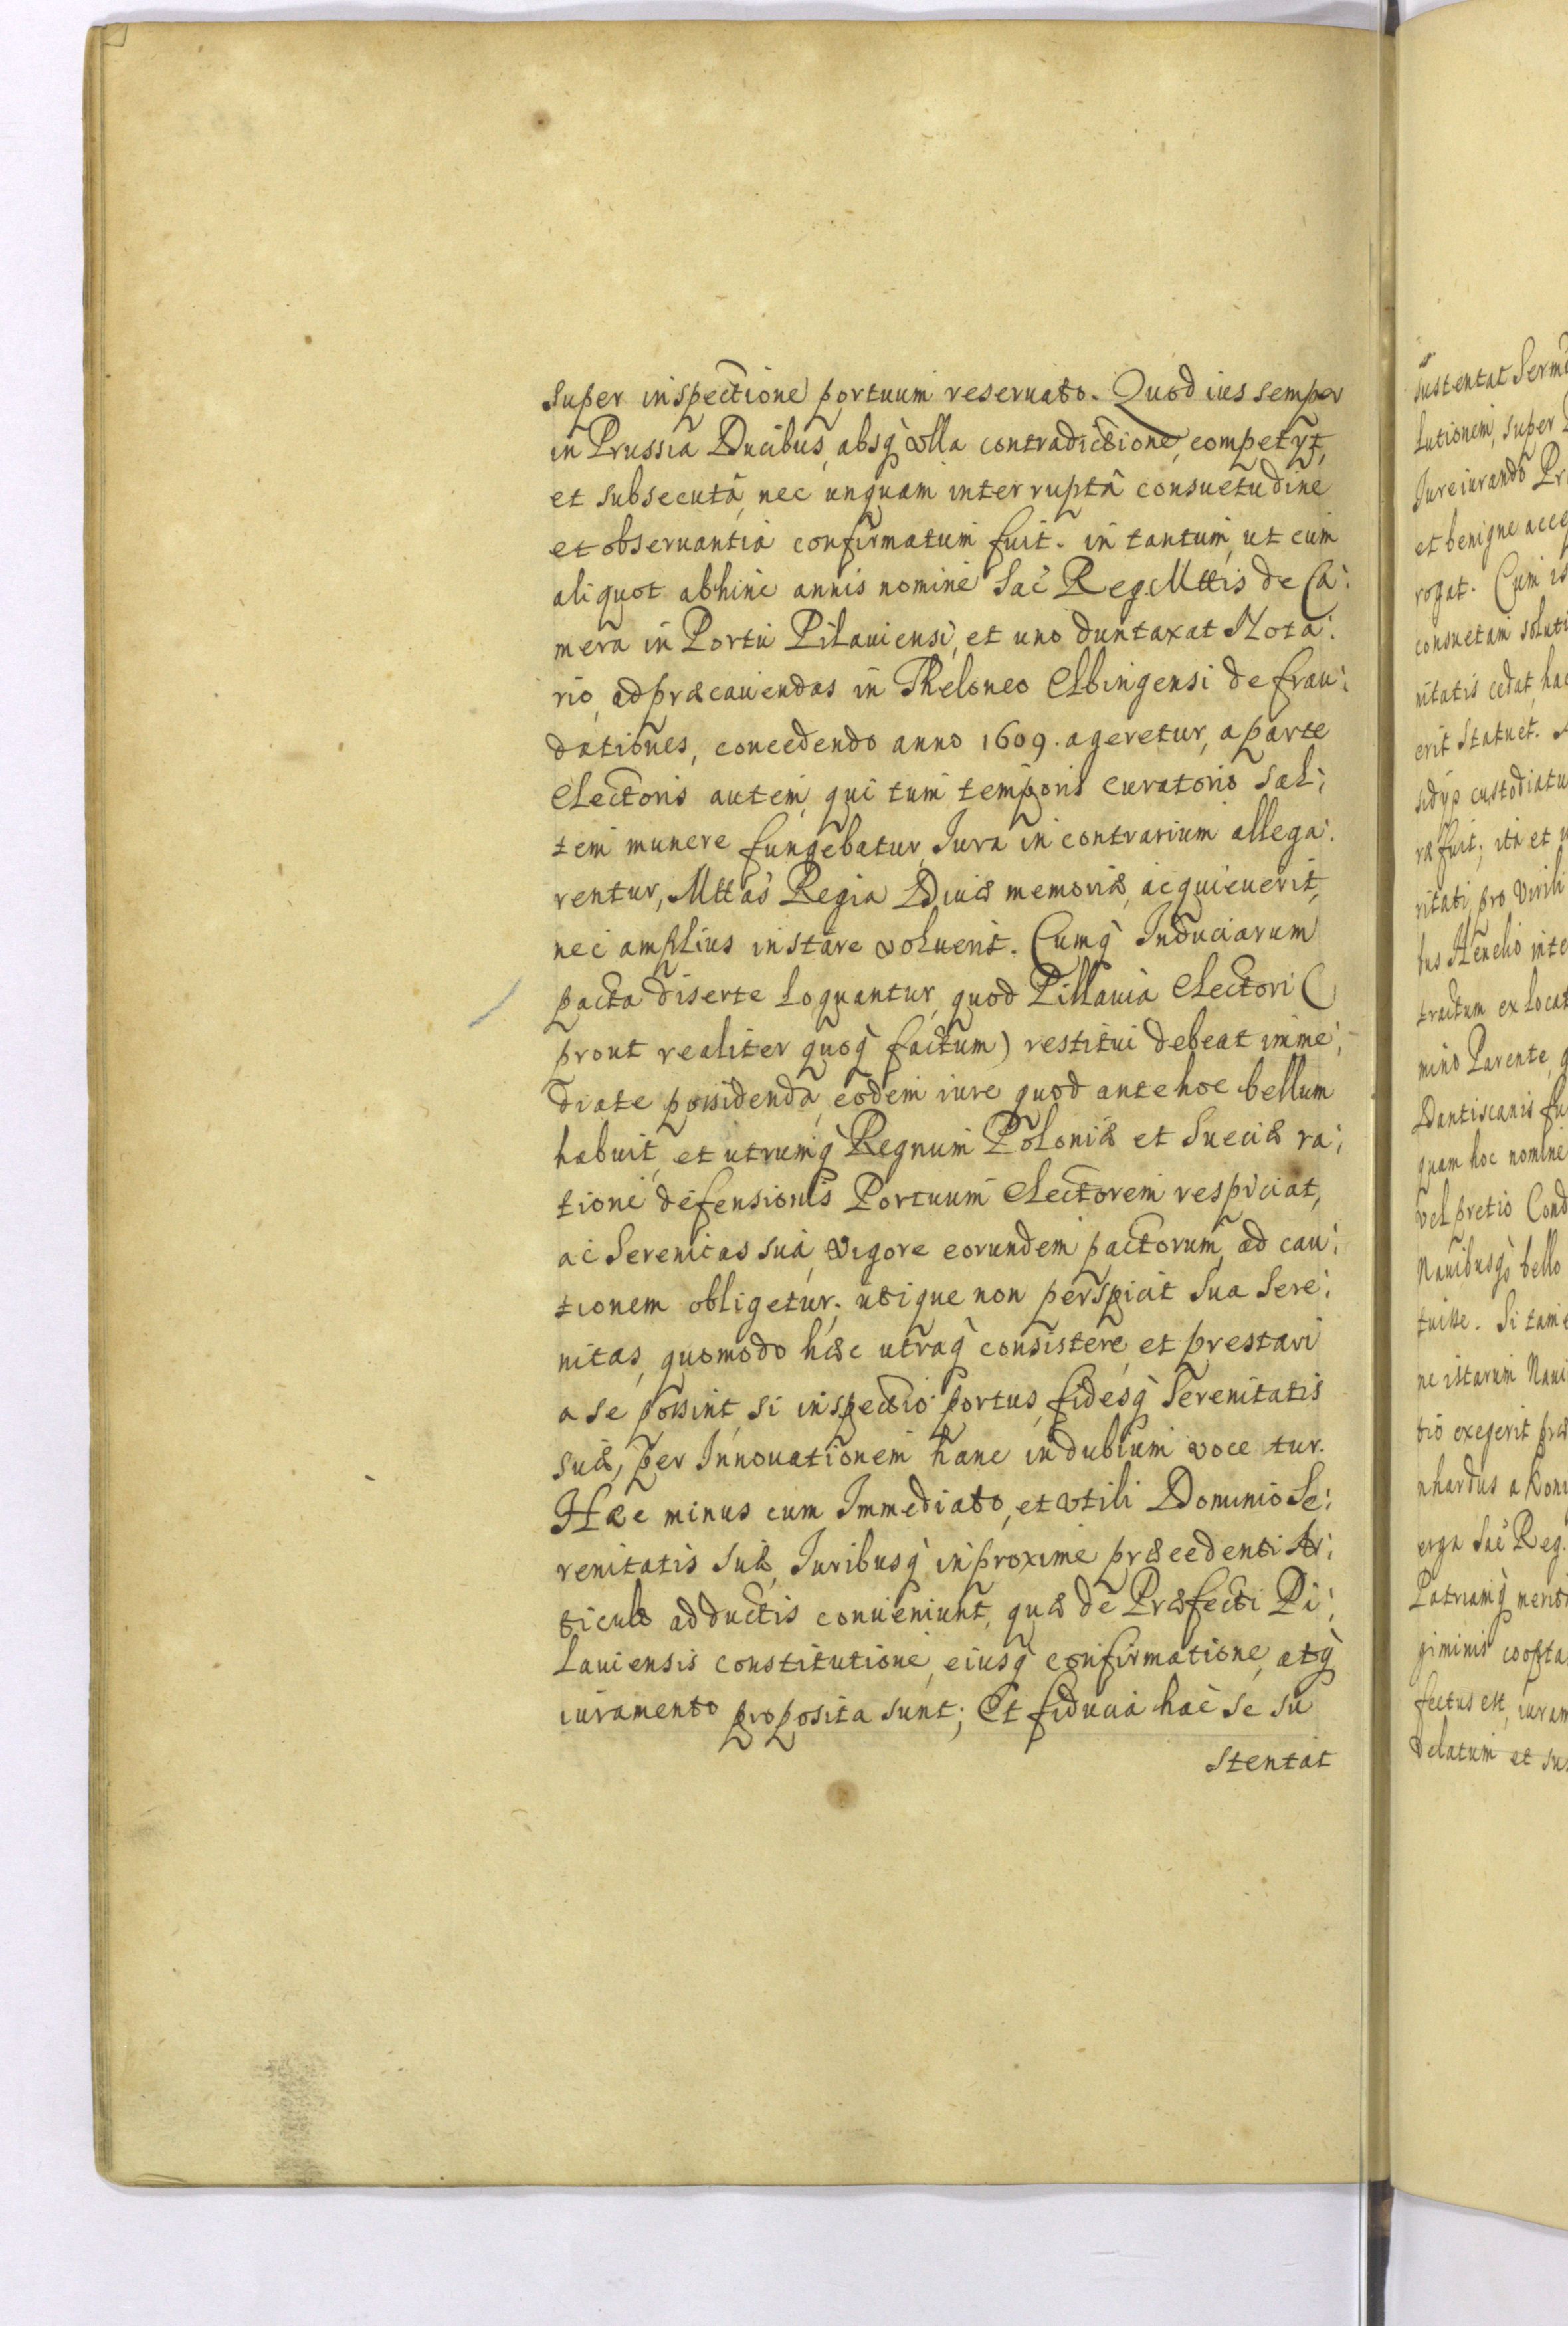 super inspectione portuum reseruato. Quod ius semper
in Prussia Ducibus, absq̀ vlla contradictione, competÿt,
et subsecutâ, nec unquam interruptâ consuetudine
et obseruantia confirmatum fuit. in tantum, ut cum
aliquot abhinc annis nomine Sac̀ Reg Mttis de Ca:
mera in Portu Pilauiensi, et uno duntaxat Nota:
rio, ad præcauendas in Theloneo Elbingensi defrau:
dationes, concedendo anno 1609. ageretur, a parte
Electoris autem, qui tum temporis curatorio sal:
tem munere fungebatur, Iura in contrarium allega:
rentur, Mttas Regia Diuæ memoriæ, acquieuerit,
nec amplius instare voluerit. Cumq̀ Induciarum
pacta diserte loquantur, quod Pillauia Electori (
prout realiter quoq̀ factum) restitui debeat imme:
diate possidenda, eodem iure quod ante hoc bellum
habuit, et utrumq̀ Regnum Poloniæ et Sueciæ ra:
tione defensionis Portuum Electorem respiciat,
ac Serenitas sua, vigore eorundem pactorum, ad cau:
tionem obligetur. utique non perspicit Sua Sere:
nitas, quomodo hæc utraq̀ consistere, et prestari
a se possint, si inspectio portus, fidesq̀ Serenitatis
suæ, per Innouationem hanc in dubium vocetur.
Hæc minus cum Immediato, et vtili Dominio Se:
renitatis suæ, Iuribusq̀ in proxime præcedenti Ar:
ticulo adductis conueniunt, quæ de Præfecti Pi:
lauiensis constitutione, eiusq̀ confirmatione, atq̀
iuramento proposita sunt; Et fiducia hac se su
stentat
sustentat Serm
lutionem, super
Iureiurando Pr
et benigne acce
rogat. Cum is
consuetam soluti
nitatis cedat, hac
erit statuet.
sidÿs custodiatu
ræ fuit; ita et
ritati pro virili
tus Henelio inte
tractum ex locat
mino Parente,
Dantiscanis fu
quam hoc nomine
vel pretio Cond
Nauibusq̀ bello
tuisse. Si tame
ne istarum Naui
tio exegerit præ
nhardus a Kon
erga Sac̀ Reg.
Patriamq̀ merit
giminis coopta
fectus est, iuram
delatum et sus